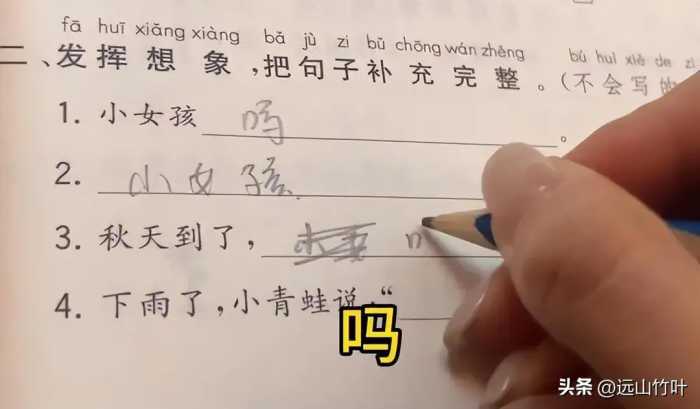 fā huī xiǎng xiàng bǎ jù zi bǔ chōng wán zhěng bú huì xiě de zì
二、发挥想象,把句子补充完整。(不会写的
1. 小女孩 吗 。
2. 小女孩
3. 秋天到了,
4. 下雨了,小青蛙说,“
吗
头条 @远山竹叶